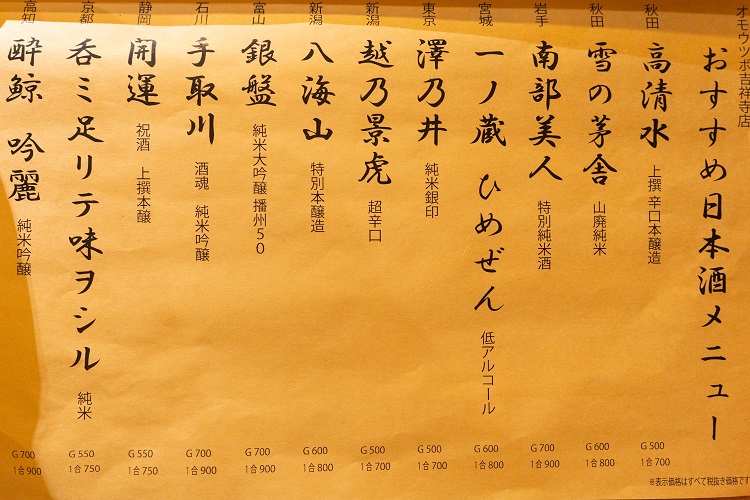 オモウツボ吉祥寺店
おすすめ日本酒メニュー
秋田
高清水 上撰 辛口本醸造
G 500
1合 700
秋田
雪の茅舎 山廃純米
G 600
1合 800
岩手
南部美人 特別純米酒
G 700
1合 900
宮城
一ノ蔵 ひめぜん 低アルコール
G 600
1合 800
東京
澤乃井 純米銀印
G 500
1合 700
新潟
越乃景虎 超辛口
G 500
1合 700
新潟
八海山 特別本醸造
G 600
1合 800
富山
銀盤 純米大吟醸 播州50
G 700
1合 900
石川
手取川 酒魂 純米吟醸
G 700
1合 900
静岡
開運 祝酒 上撰本醸
G 550
1合 750
京都
呑ミ足リテ味ヲシル 純米
G 550
1合 750
高知
酔鯨 吟麗 純米吟醸
G 700
1合 900
※表示価格はすべて税抜き価格です